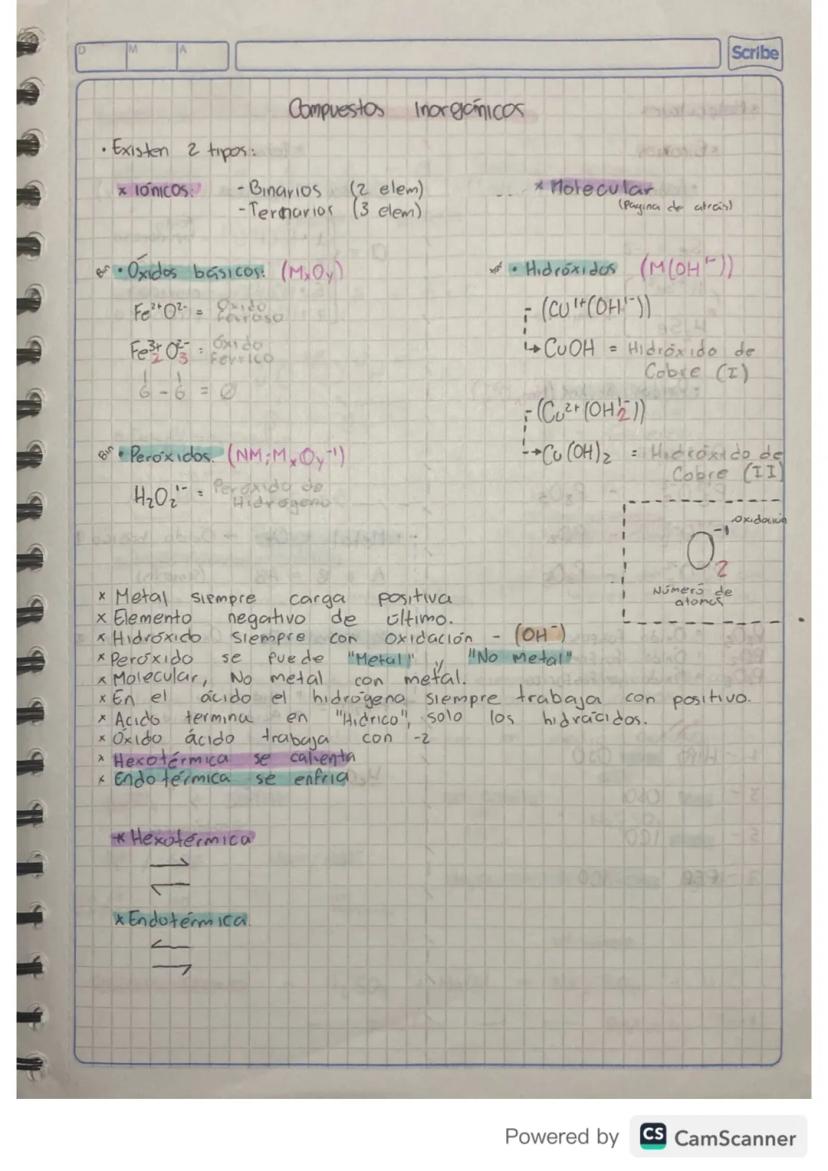 D M A
Scribe
Compuestos Inorgánicos
• Existen 2 tipos:
x Iónicos: - Binarios (2 elem)
- Ternarios (3 elem)
x Molecular
(Pagina de atrás)
Bin • Óxidos básicos: (MxOy)
Fe²⁺O²⁻ = Óxido Ferroso
Fe₂³⁺O₃²⁻ = Óxido Férrico
6 - 6 = 0
Bin • Peróxidos. (NM;MxOy⁻¹)
H₂O₂¹⁻ = Peróxido de
Hidrógeno
• Hidróxidos (M(OH¹⁻))
- (CU¹⁺(OH¹⁻))
↳ CuOH = Hidróxido de
Cobre (I)
- (Cu²⁺(OH¹⁻₂))
→ Cu(OH)₂ = Hidróxido de
Cobre (II)
oxidación
O₂⁻¹
Número de
atomos
x Metal siempre carga positiva
x Elemento negativo de último.
x Hidróxido siempre con oxidación - (OH⁻)
x Peróxido se puede "Metal" y "No Metal"
x Molecular, No metal con metal.
x En el ácido el hidrógeno siempre trabaja con positivo.
x Acido termina en "Hídrico", solo los hidrácidos.
x Oxido ácido trabaja con -2
x Hexotérmica se calienta
x Endotérmica se enfria
x Hexotérmica
x Endotérmica
Powered by CS CamScanner